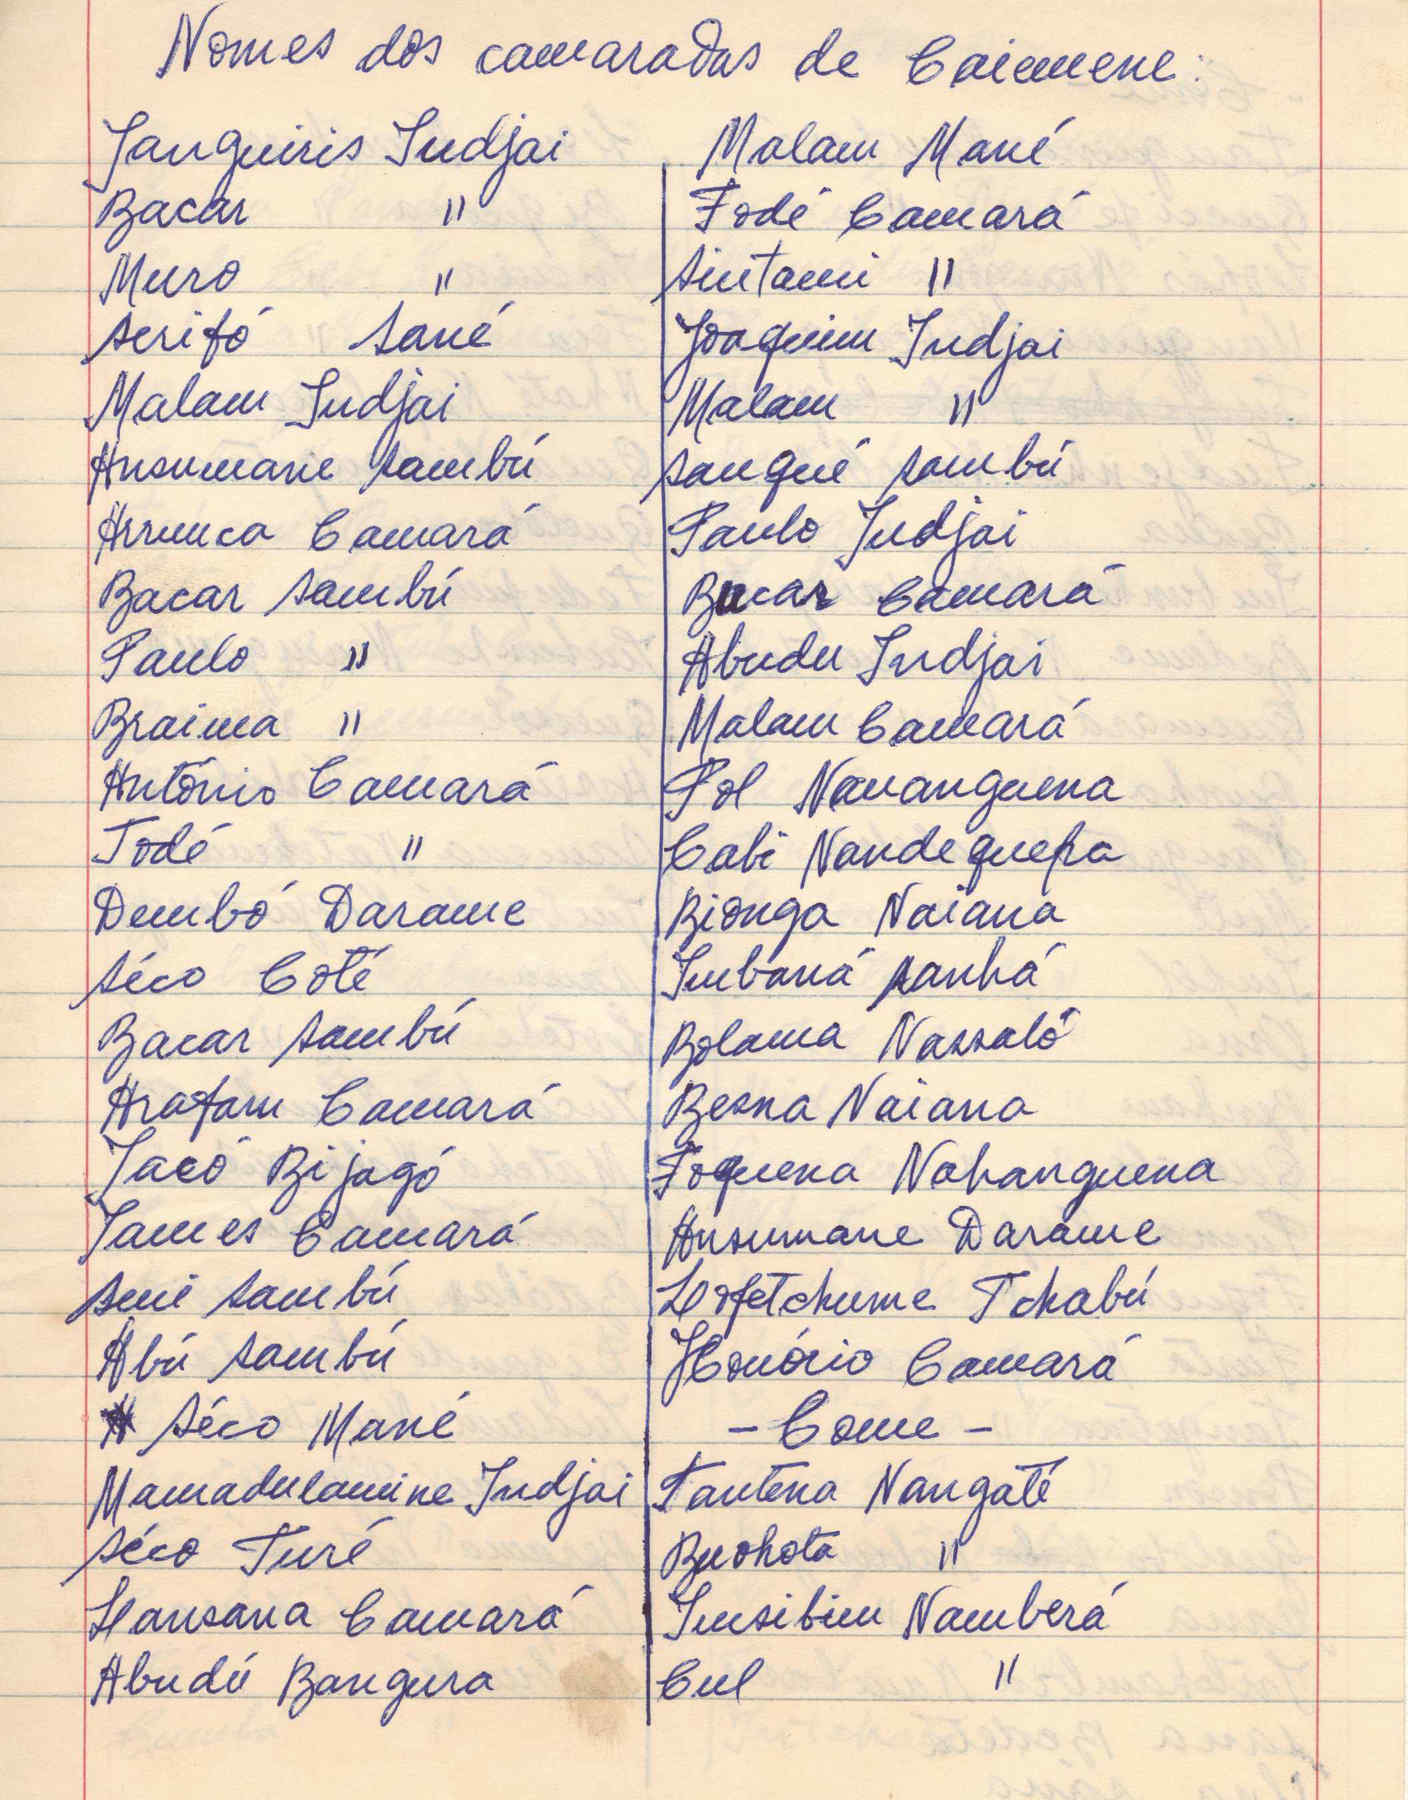 Nomes dos camaradas de Caimene:
Janguiris Indjai
Bacar "
Muro "
Serifó Sané
Malam Indjai
Ansumane Sambú
Armuca Camará
Bacar Sambú
Paulo "
Braima "
António Camará
Fodé "
Dembó Darame
Séco Coté
Bacar Sambú
Arafam Camará
Jacó Bijagó
James Camará
Sene Sambú
Abú Sambú
Séco Mané
Mamadulamine Indjai
Séco Turé
Lansana Camará
Abudú Bangura
Malam Mané
Fodé Camará
Sintami "
Joaquim Indjai
Malam "
Sangué Sambú
Paulo Indjai
Bacar Camará
Abudu Indjai
Malam Camará
Pol Nauanguena
Cabi Nandequefa
Bionga Naiana
Imbaná Sanhá
Bolama Nassaló
Besna Naiana
Foquena Nahanguena
Ansumane Darame
Tchabú
Honório Camará
- Come -
Fantena Nangaté
Buohota "
Insibim Namberá
Cul "